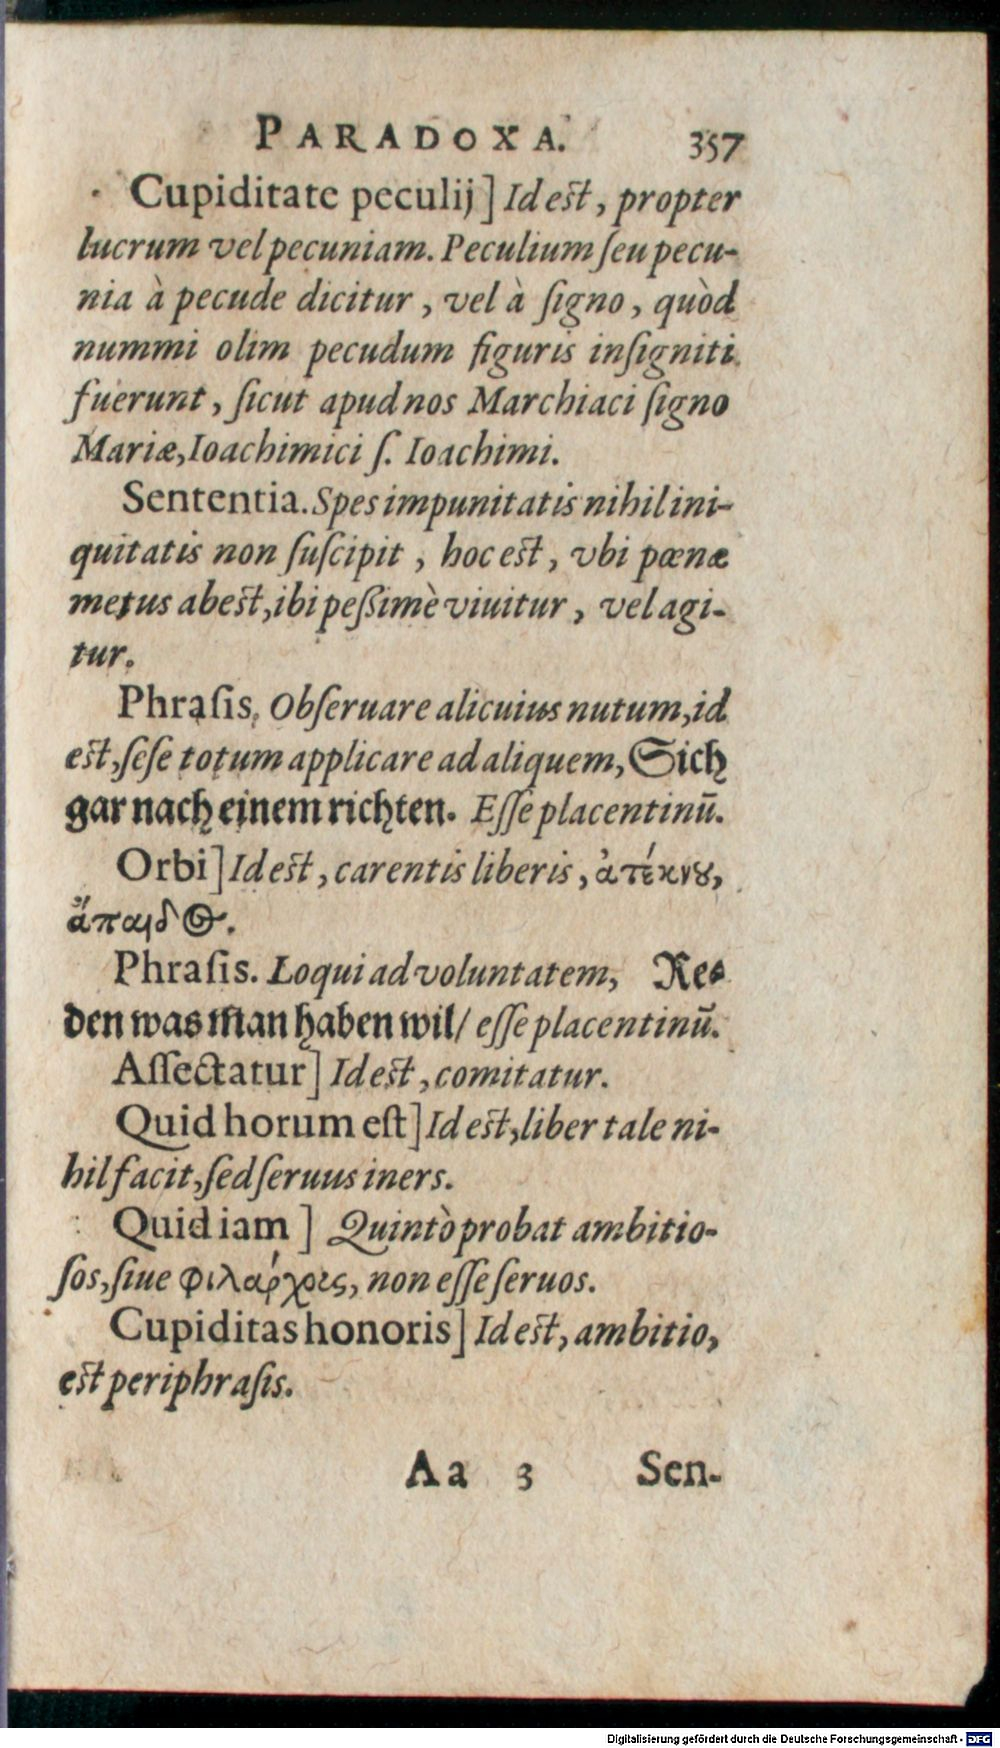 PARADOXA. 357
Cupiditate peculij] Id est, propter
lucrum vel pecuniam. Peculium ſeu pecu-
nia à pecude dicitur, vel à ſigno, quòd
nummi olim pecudum figuris inſigniti
fuerunt, ſicut apud nos Marchiaci ſigno
Mariæ, Ioachimici ſ. Ioachimi.
Sententia. Spes impunitatis nihil ini-
quitatis non ſuſcipit, hoc est, vbi pœnæ
metus abest, ibi peßimè viuitur, vel agi-
tur.
Phraſis. Obſeruare alicuius nutum, id
est, ſeſe totum applicare ad aliquem, Sich
gar nach einem richten. Eſſe placentinū.
Orbi] Id est, carentis liberis, ἀτέκνȣ,
ἄπαιδ⊙.
Phraſis. Loqui ad voluntatem, Re⸗
den was man haben wil/ eſſe placentinū.
Aſſectatur] Id est, comitatur.
Quid horum eſt] Id est, liber tale ni-
hil facit, ſed ſeruus iners.
Quid iam] Quintò probat ambitio-
ſos, ſiue φιλάρχȣς, non eſſe ſeruos.
Cupiditas honoris] Id est, ambitio,
est periphraſis.
Aa 3 Sen-
Digitalisierung gefördert durch die Deutsche Forschungsgemeinschaft - DFG